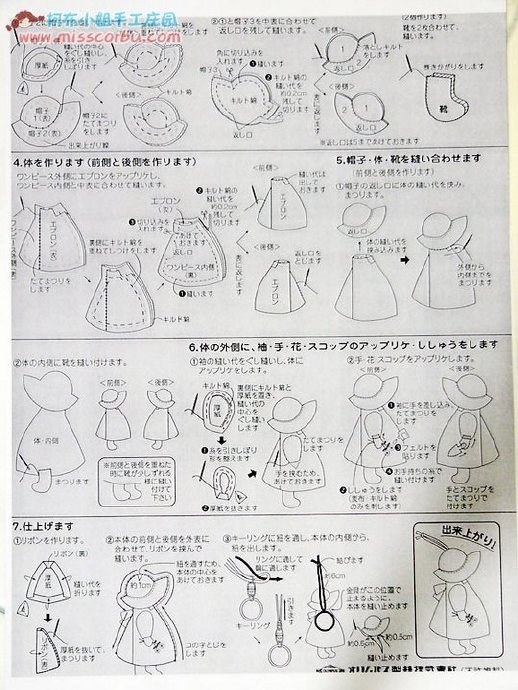 柯布小姐手工庄园
www.misscorbu.com
②①と帽子3を中表に合わせて
返し口を残して縫います。
靴を2枚合わせて
縫います。
縫い代の中心
をぐし縫い
し、糸を引き
しぼります
厚紙
角に切り込みを
入れます
帽子3
①縫います
②キルト綿の
縫い代を
約0.2cm
残して
切ります
キルト綿
返し口
<前側>
落としキルト
をします
返し口
巻きかがりをします
靴
帽子
1(表)
帽子2(表)
帽子2に
たてまつりを
します
<後側>
キルト綿
出来上がり線
<後側>
返し口
※返し口は5まであけておきます
4.体を作ります(前側と後側を作ります)
ワンピース外側にエプロンをアップリケし、
ワンピース内側と中表に合わせて縫います。
エプロン(表)
エプロン
(表)
③切り込みを
入れます
②キルト綿
の縫い代
を約0.2cm
残して
切ります
裏側にキルト綿を
重ねてしつけをします
あけて
おきます
ワンピース内側
(裏)
①縫います
たてまつりを
します
キルト綿
<前側>
返し口は
出して
おきます
エプロン
表に返します
<後側>
返し口を
とじます
エプロン
5.帽子・体・靴を縫い合わせます
(前側と後側を作ります)
①帽子の返し口に体の縫い代を挟み、
まつります。
<前側>
体の縫い代を
挟み込みます
<後側>
外側から
内側まで
まつります
②体の内側に靴を縫い付けます。
体・内側
まつります
<前側>
<後側>
※前側と後側を重ねた
時に靴が少しずれる
様に縫い付けて
下さい
6.体の外側に、袖・手・花・スコップのアップリケ・ししゅうをします
①袖の縫い代をぐし縫いし、体に
アップリケをします。
キルト綿
裏側にキルト綿と
厚紙を置き、
縫い代の
中心を
ぐし縫い
します
厚紙
①糸を引きしぼり
形を整えます
②厚紙を抜きます
たてまつりを
します
手を挟むため、
あけておきます
②手・花・スコップをアップリケします。
<前側>
<後側>
①袖に手を差し込み、
たてまつりを
します
③フェルトを
貼ります
④お手持ちの糸で
縫い付けます
②ししゅうをします
(表布・キルト綿
のみを刺します)
手とスコップを
たてまつりで
付けます
7.仕上げます
①リボンを作ります。
リボン(裏)
厚紙
縫い代を
折ります
厚紙を抜いて、
まつります
リボン(表)
②本体の前側と後側を外表に
合わせて、リボンを挟んで
縫います。
紐を通すため、
本体の中心を
あけておきます
約1cm
コの字とじを
します
③キーリングに紐を通し、本体の内側から、
紐を出します。
リングに通して
輪に通します
引きます
キーリング
結びます
約6cm
金具がこの位置で
止まるように、
本体を縫い止めます
約0.5cm
約0.5cm
縫い止めます
出来上がり!
オリムパス製絲株式会社